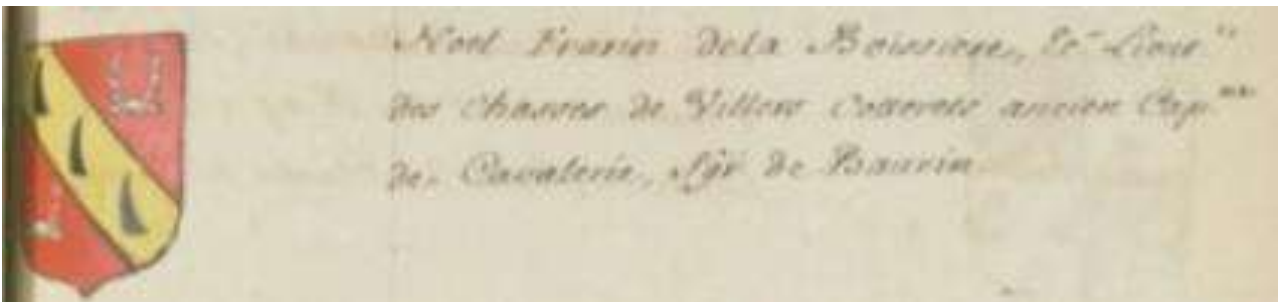 Noel Frarin dela Boissiere, Lieut
des Chasses de Villers Cotterets ancien Cap.ne
de Cavalerie, Sgr de